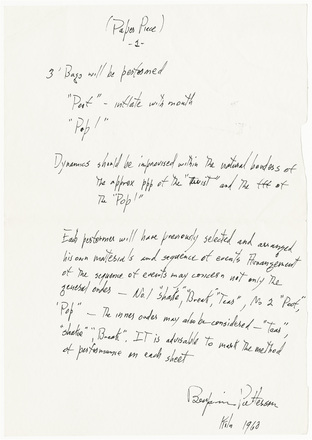 (Paper Piece)
-1-
3 Bags will be performed
"Poof" - inflate with mouth
"Pop!"
Dynamics should be improvised within the natural borders of
the approx ppp of the "twist" and the fff of
the "Pop!"
Each performer will have previously selected and arranged
his own materials and sequence of events. Arrangement
of the sequence of events may concern not only the
general order — No 1 "shake," "Break," "Tear", No 2 "Poof",
"Pop" — The inner order may also be considered — "Tear",
"shake" "Break". IT is advisable to mark the method
of performance on each sheet
Benjamin Patterson
Köln 1960